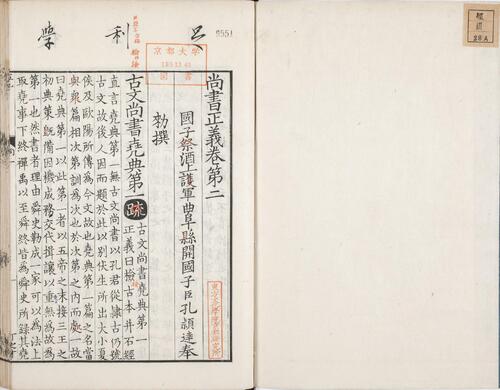 足利學
京都大学
図書
尚書正義卷第二
國子祭酒上護軍曲阜縣開國子臣孔穎達奉
勅撰
古文尚書堯典第一 疏 古文尚書堯典第一
正義曰檢古本并石經
直言堯典第一無古文尚書以孔君從隸古仍號
古文故後人因而題於此以別伏生所出大小夏
侯及歐陽所傳為今文故也堯典第一篇之名當
與衆篇相次第訓為次也於次第之內而處一故
曰堯典第一以此第一者以五帝之末接三王之
初典策既備因機成務交代揖讓以垂無為故為
第一也然書者理由舜史勒成一家可以為法上
取堯事下終禪禹以至舜終皆為舜史所錄其堯